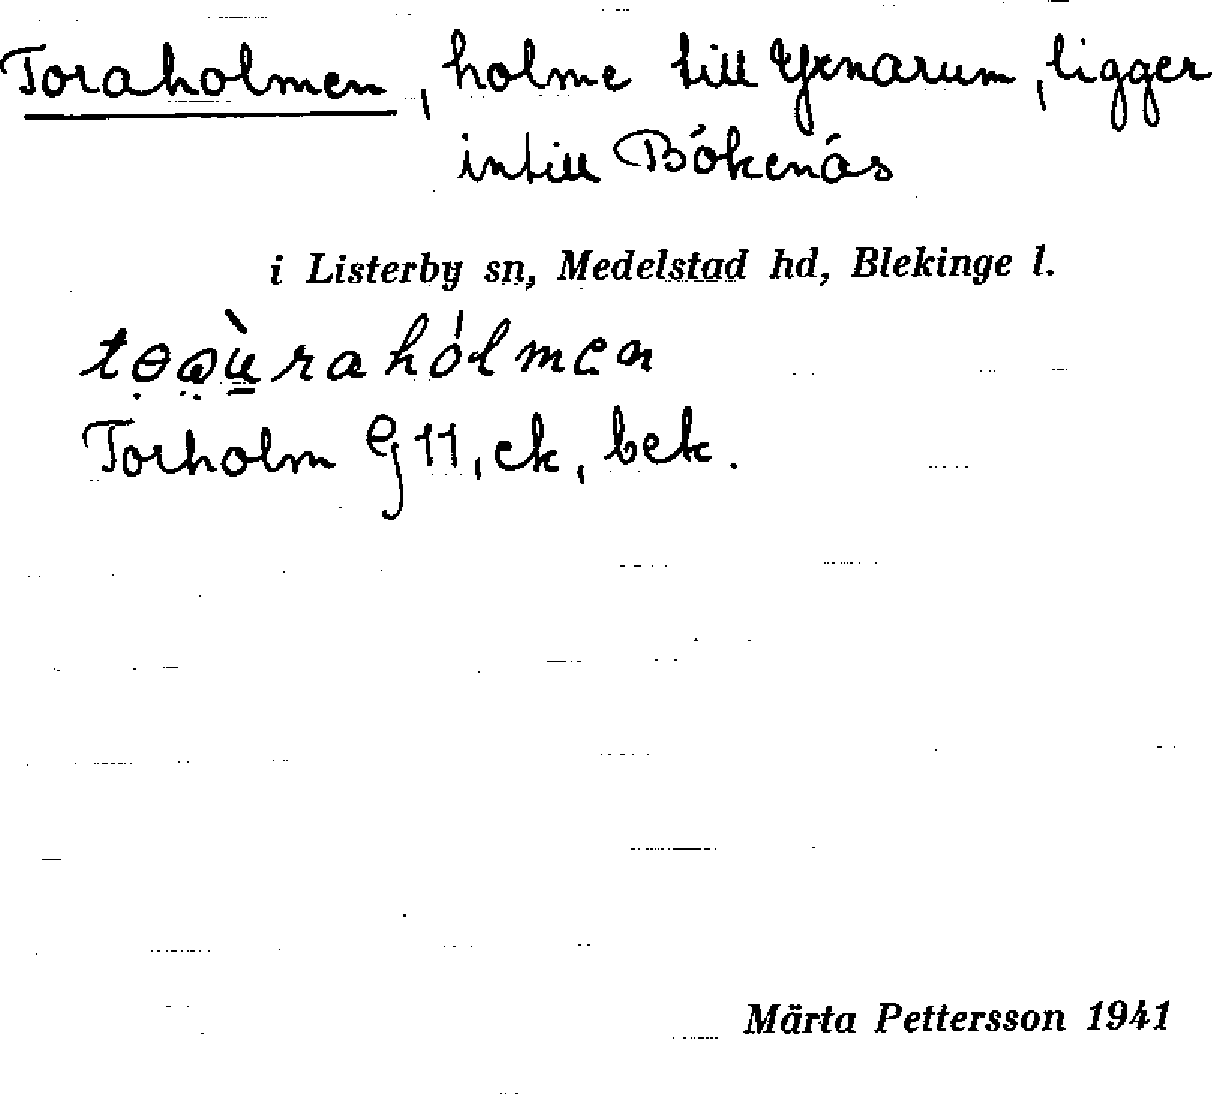 Toraholmen, holme till Yxnarum, ligger
intill Bökenäs
i Listerby sn, Medelstad hd, Blekinge l.
Torholm G 11, ek, bek.
Märta Pettersson 1941